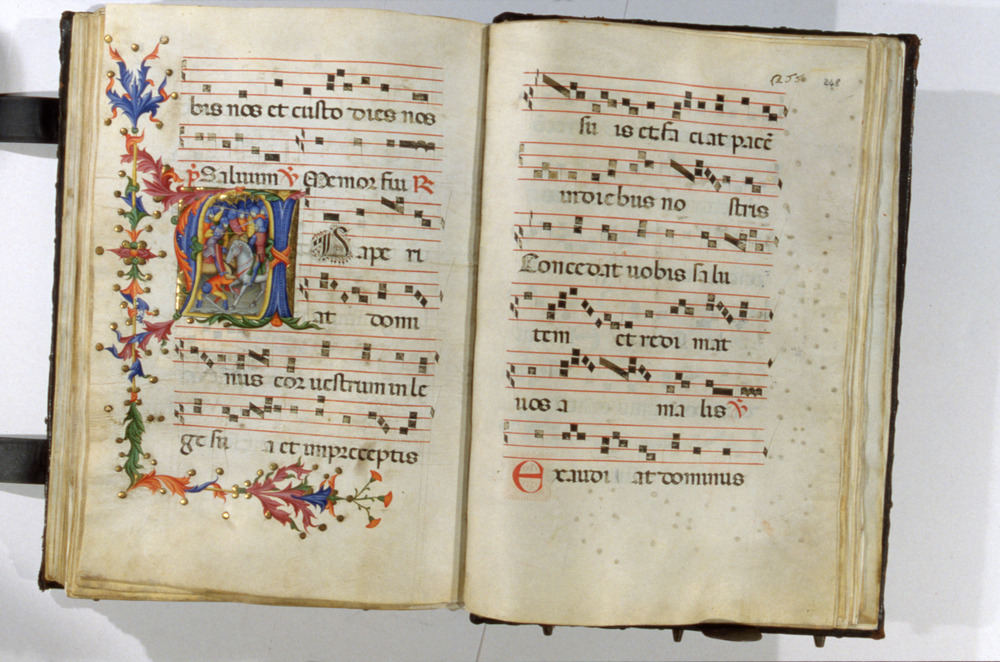 bis nos et custo dies nos
p̃ Saluum ℣ Memor fui ℟
A Pape ri
at domi
nus cor uestrum in le
ge su a et in preceptis
248
su is et fa ci at pacē
in die bus no stris
Concedat uobis salu
tem et redi mat
uos a ma lis ℣
Exaudi at dominus